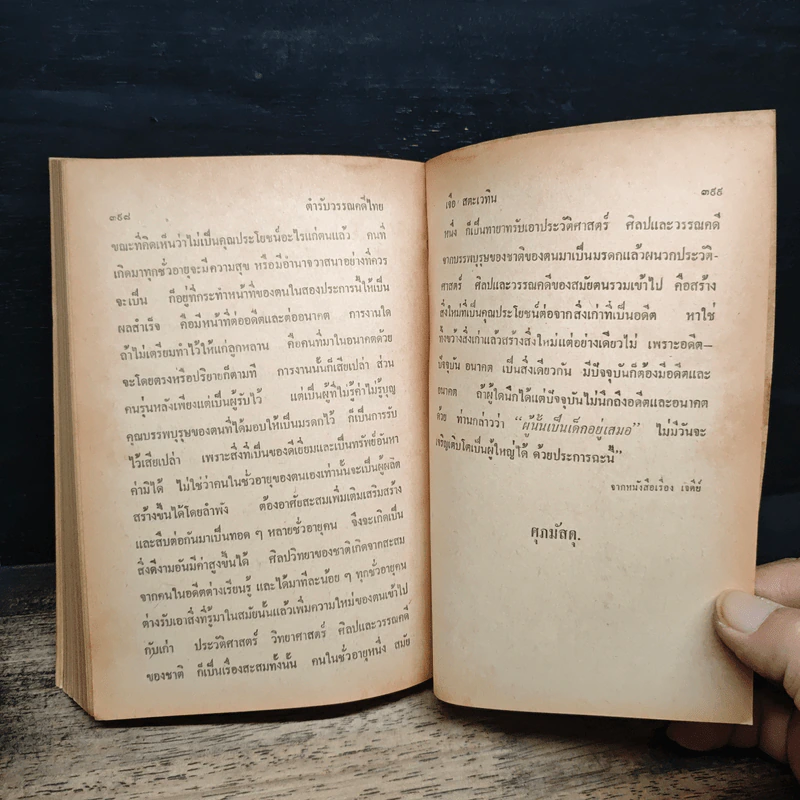 ๓๙๘
ตำรับวรรณคดีไทย
ขณะที่คิดเห็นว่าไม่เป็นคุณประโยชน์อะไรแก่ตนแล้ว คนที่
เกิดมาทุกชั่วอายุจะมีความสุข หรือมีอำนาจวาสนาอย่างที่ควร
จะเป็น ก็อยู่ที่กระทำหน้าที่ของตนในสองประการนี้ให้เป็น
ผลสำเร็จ คือมีหน้าที่ต่ออดีตและต่ออนาคต การงานใด
ถ้าไม่เตรียมทำไว้ให้แก่ลูกหลาน คือคนที่มาในอนาคตด้วย
จะโดยตรงหรือปริยายก็ตามที การงานนั้นก็เสียเปล่า ส่วน
คนรุ่นหลังเพียงแต่เป็นผู้รับไว้ แต่เป็นผู้ที่ไม่รู้ค่าไม่รู้บุญ
คุณบรรพบุรุษของตนที่ได้มอบให้เป็นมรดกไว้ ก็เป็นการรับ
ไว้เสียเปล่า เพราะสิ่งที่เป็นของดีเยี่ยมและเป็นทรัพย์อันหา
ค่ามิได้ ไม่ใช่ว่าคนในชั่วอายุของตนเองเท่านั้นจะเป็นผู้ผลิต
สร้างขึ้นได้โดยลำพัง ต้องอาศัยสะสมเพิ่มเติมเสริมสร้าง
และสืบต่อกันมาเป็นทอด ๆ หลายชั่วอายุคน จึงจะเกิดเป็น
สิ่งดีงามอันมีค่าสูงขึ้นได้ ศิลปวิทยาของชาติเกิดจากสะสม
จากคนในอดีตต่างเรียนรู้ และได้มาทีละน้อย ๆ ทุกชั่วอายุคน
ต่างรับเอาสิ่งที่รู้มาในสมัยนั้นแล้วเพิ่มความใหม่ของตนเข้าไป
กับเก่า ประวัติศาสตร์ วิทยาศาสตร์ ศิลปและวรรณคดี
ของชาติ ก็เป็นเรื่องสะสมทั้งนั้น คนในชั่วอายุหนึ่ง สมัย
เจือ สตะเวทิน
๓๙๙
หนึ่ง ก็เป็นทายาทรับเอาประวัติศาสตร์ ศิลปและวรรณคดี
จากบรรพบุรุษของชาติของตนมาเป็นมรดกแล้วผนวกประวัติ-
ศาสตร์ ศิลปและวรรณคดีของสมัยตนรวมเข้าไป คือสร้าง
สิ่งใหม่ที่เป็นคุณประโยชน์ต่อจากสิ่งเก่าที่เป็นอดีต หาใช่
ทิ้งขว้างสิ่งเก่าแล้วสร้างสิ่งใหม่แต่อย่างเดียวไม่ เพราะอดีต—
ปัจจุบัน อนาคต เป็นสิ่งเดียวกัน มีปัจจุบันก็ต้องมีอดีตและ
อนาคต ถ้าผู้ใดนึกได้แต่ปัจจุบันไม่นึกถึงอดีตและอนาคต
ด้วย ท่านกล่าวว่า "ผู้นั้นเป็นเด็กอยู่เสมอ" ไม่มีวันจะ
เจริญเติบโตเป็นผู้ใหญ่ได้ ด้วยประการฉะนี้"
จากหนังสือเรื่อง เจดีย์
ศุภมัสดุ.